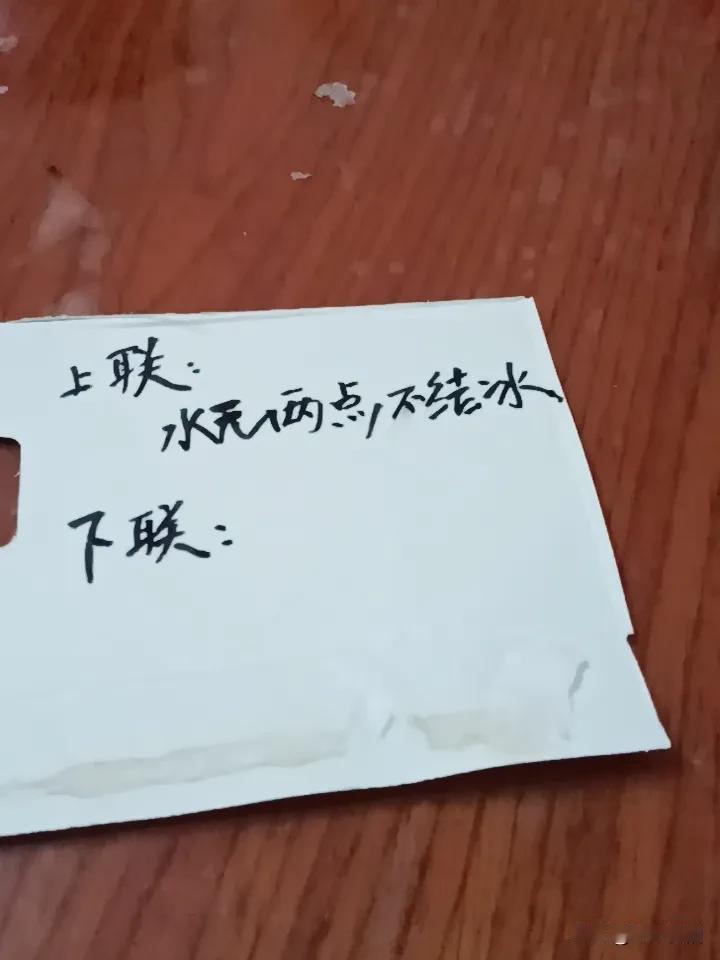 上联：
水无两点，不结冰
下联：